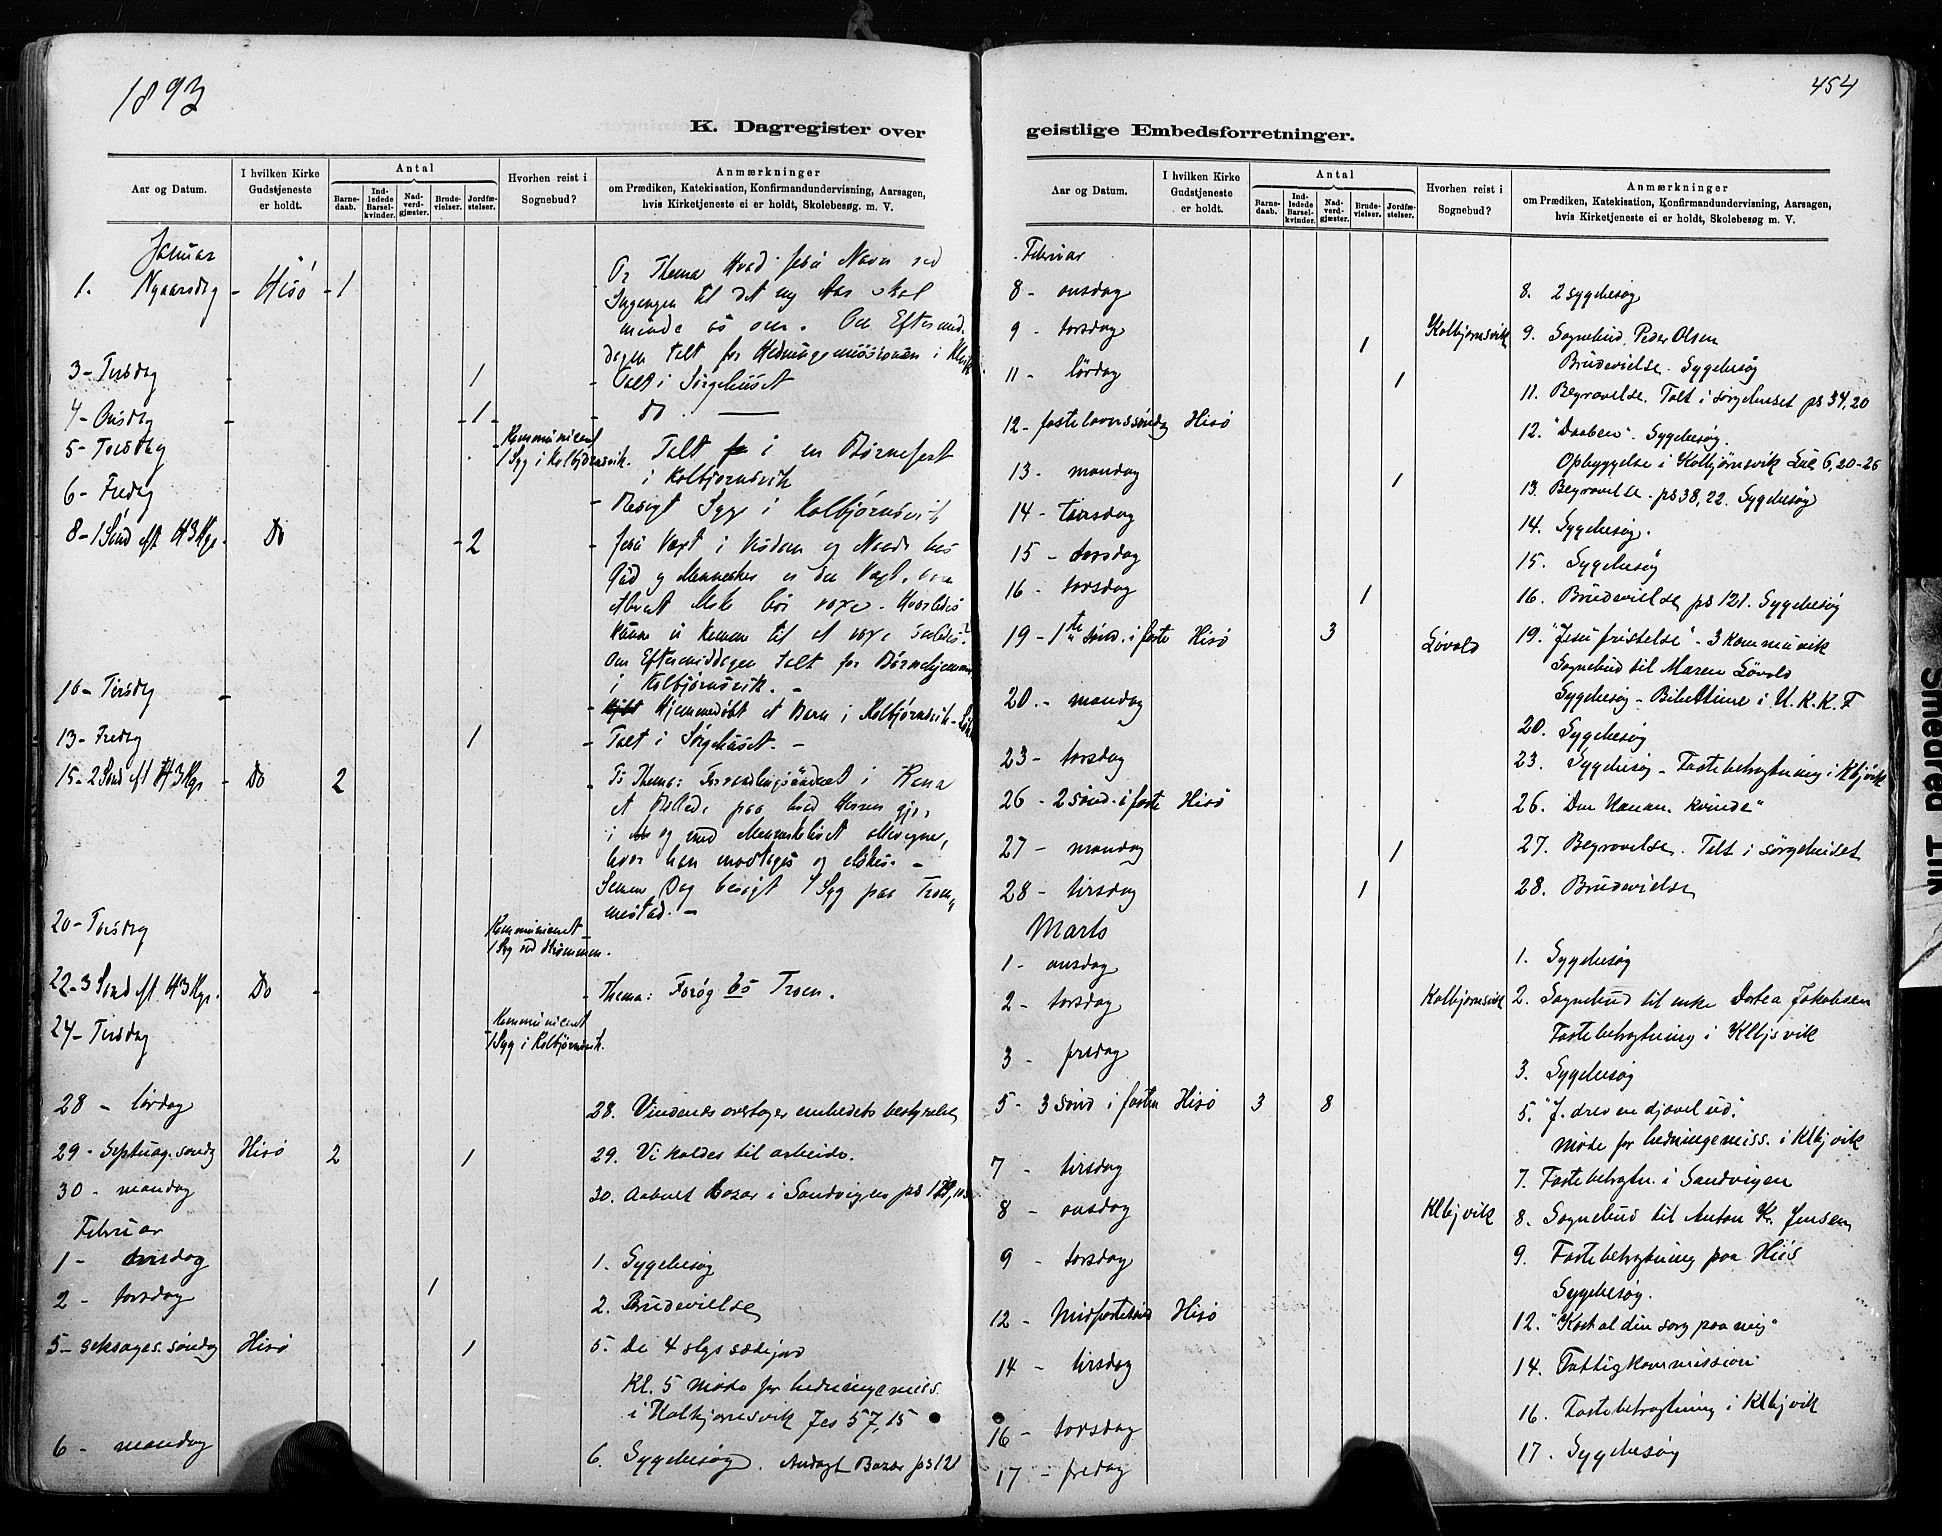 1893
K. Dagregister over
Aar og Datum.
I hvilken Kirke Gudstjeneste er holdt.
Antal
Barnedaab.
Indledede Barselkvinder.
Nadverdgjæster.
Brudevielser.
Jordfæstelser.
Hvorhen reist i Sognebud?
Anmærkninger
om Prædiken, Katekisation, Konfirmandundervisning, Aarsagen,
hvis Kirketjeneste ei er holdt, Skolebesøg m. V.
Januar
1. Nyaarsdag - Hisö - 1
Thema Hvad Jesu Navn ved
Indgangen til det ny Aar skal
minde os om. Om Eftermid-
dagen talt for Hedningemissionen i
3 - Tirsdag - 1 - Talt i Sørgehuset
4 - Onsdag - 1 - do
5 - Torsdag Kommuniceret 1 Syg i Kolbjörnsvik. Talt i en Børnefest
i Kolbjørnsvik
6 - Fredag - Besøgt Syge i Kolbjørnsvik
8 - 1 Sönd eft H3Kgr. Do - 2 - Jesu Vext i Visdom og Naade hos
Gud og Mennesker
Om Eftermiddagen talt for Børnehjemmet
i Kolbjørnsvik. -
10 - Tirsdag - Hjemmedøbt et Barn i Kolbjørnsvik
13 - Fredag 1 - Talt i Sørgehuset. -
15 - 2 Sönd eft H3Kgr - Do 2 - Thema:
hvor han modtages og elskes. -
Samme Dag besøgt 1 Syg paa Trom-
mestad. -
20 - Torsdag Kommuniceret 1 Syg ved Strømmen.
22 - 3 Sönd eft H3Kgr. Do - - Thema: Forøg os Troen.
24 - Tirsdag Kommuniceret 1 Syg i Kolbjørnsvik.
28 - lördag 28. Vindenes overtager embedets bestyrelse
29 - Septuag. søndag Hisö 2 1 29. Vi kaldes til arbeide.
30 - mandag 30. Aabnet Bazar i Sandvigen ps 119,105
Februar
1 - onsdag 1. Sygebesøg
2 - torsdag 1 2. Brudevielse
5 - seksages. søndag Hisö 1 5. De 4 slags sædejord
Kl. 5 møde for hedningemiss.
i Kolbjørnsvik Jes 57,15
6 - mandag 6. Sygebesøg. Andagt Bazar ps 121
454
geistlige Embedsforretninger.
Aar og Datum.
I hvilken Kirke Gudstjeneste er holdt.
Antal
Barnedaab.
Indledede Barselkvinder.
Nadverdgjæster.
Brudevielser.
Jordfæstelser.
Hvorhen reist i Sognebud?
Anmærkninger
om Prædiken, Katekisation, Konfirmandundervisning, Aarsagen,
hvis Kirketjeneste ei er holdt, Skolebesøg m. V.
Februar
8 - onsdag 8. 2 sygebesøg
9 - torsdag 1 Kolbjørnsvik 9. Sognebud. Peder Olsen
Brudevielse. Sygebesøg
11 - lördag 1 11. Begravelse. Talt i sørgehuset ps 34,20
12 - fastelavnssöndag Hisö 12. "Daaben". Sygebesøg.
Opbyggelse i Kolbjørnsvik Luc 6,20-26
13 - mandag 1 13. Begravelse. ps 38,22. Sygebesøg
14 - tirsdag 14. Sygebesøg.
15 - torsdag 15. Sygebesøg
16 - torsdag 1 16. Brudevielse ps 121. Sygebesøg
19 - 1te sønd. i faste Hisö 3 Løvold 19. "Jesu fristelse" - 3 kommunik
Sognebud til Maren Løvold
Sygebesøg - Bibeltime i U.K.K.F
20. - mandag 20. Sygebesøg
23 - torsdag 23. Sygebesøg - Fastebetragtning i Klbjvik
26 - 2 sønd. i faste Hisö 26. "Den Kanan. kvinde"
27 - mandag 1 27. Begravelse. Talt i sørgehuset
28 - tirsdag 1 28. Brudevielse
Marts
1 - onsdag 1. Sygebesøg
2 - torsdag Kolbjørnsvik 2. Sognebud til enke Dortea Jakobsen
Fastebetragtning i Klbjsvik
3 - fredag 3. Sygebesøg
5 - 3 sønd i fasten Hisö 3 8 5. "J. drev en djævel ud".
Møde for hedningemiss. i Klbjvik
7 - tirsdag 7. Fastebetragtn. i Sandvigen
8 - onsdag Klbjvik 8. Sognebud til Anton Kr. Jensen
9 - torsdag 9. Fastebetragtning paa Hiis
Sygebesøg.
12 - Midfastesönd Hisö 12. "Kast al din sorg paa mig"
14 - tirsdag 14. Fattigkommission
16 - torsdag 16. Fastebetragtning i Klbjvik
17 - fredag 17. Sygebesøg
Smedred Tvik